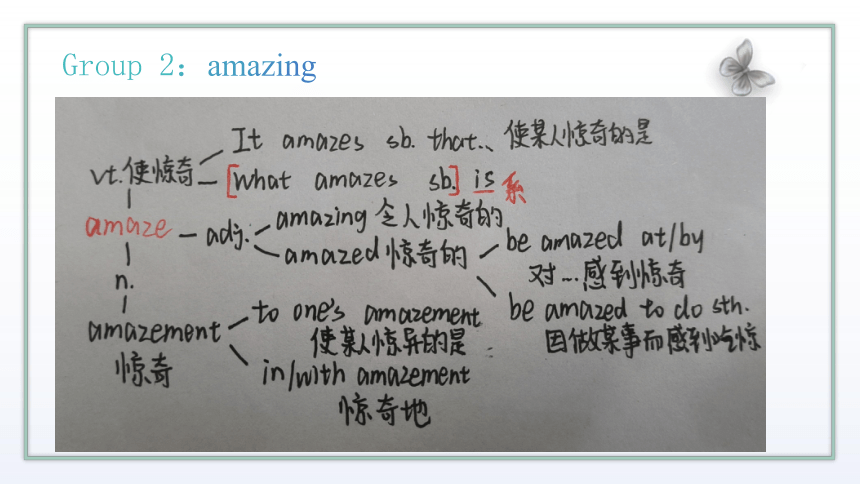 Group 2: amazing
It amazes sb. that.. 使某人惊奇的是
vt.使惊奇
[what amazes sb.] is 系
amaze
adj.
amazing 令人惊奇的
amazed 惊奇的
be amazed at/by
对...感到惊奇
be amazed to do sth.
因做某事而感到吃惊
n.
amazement
惊奇
to one's amazement
使某人惊异的是
in/with amazement
惊奇地